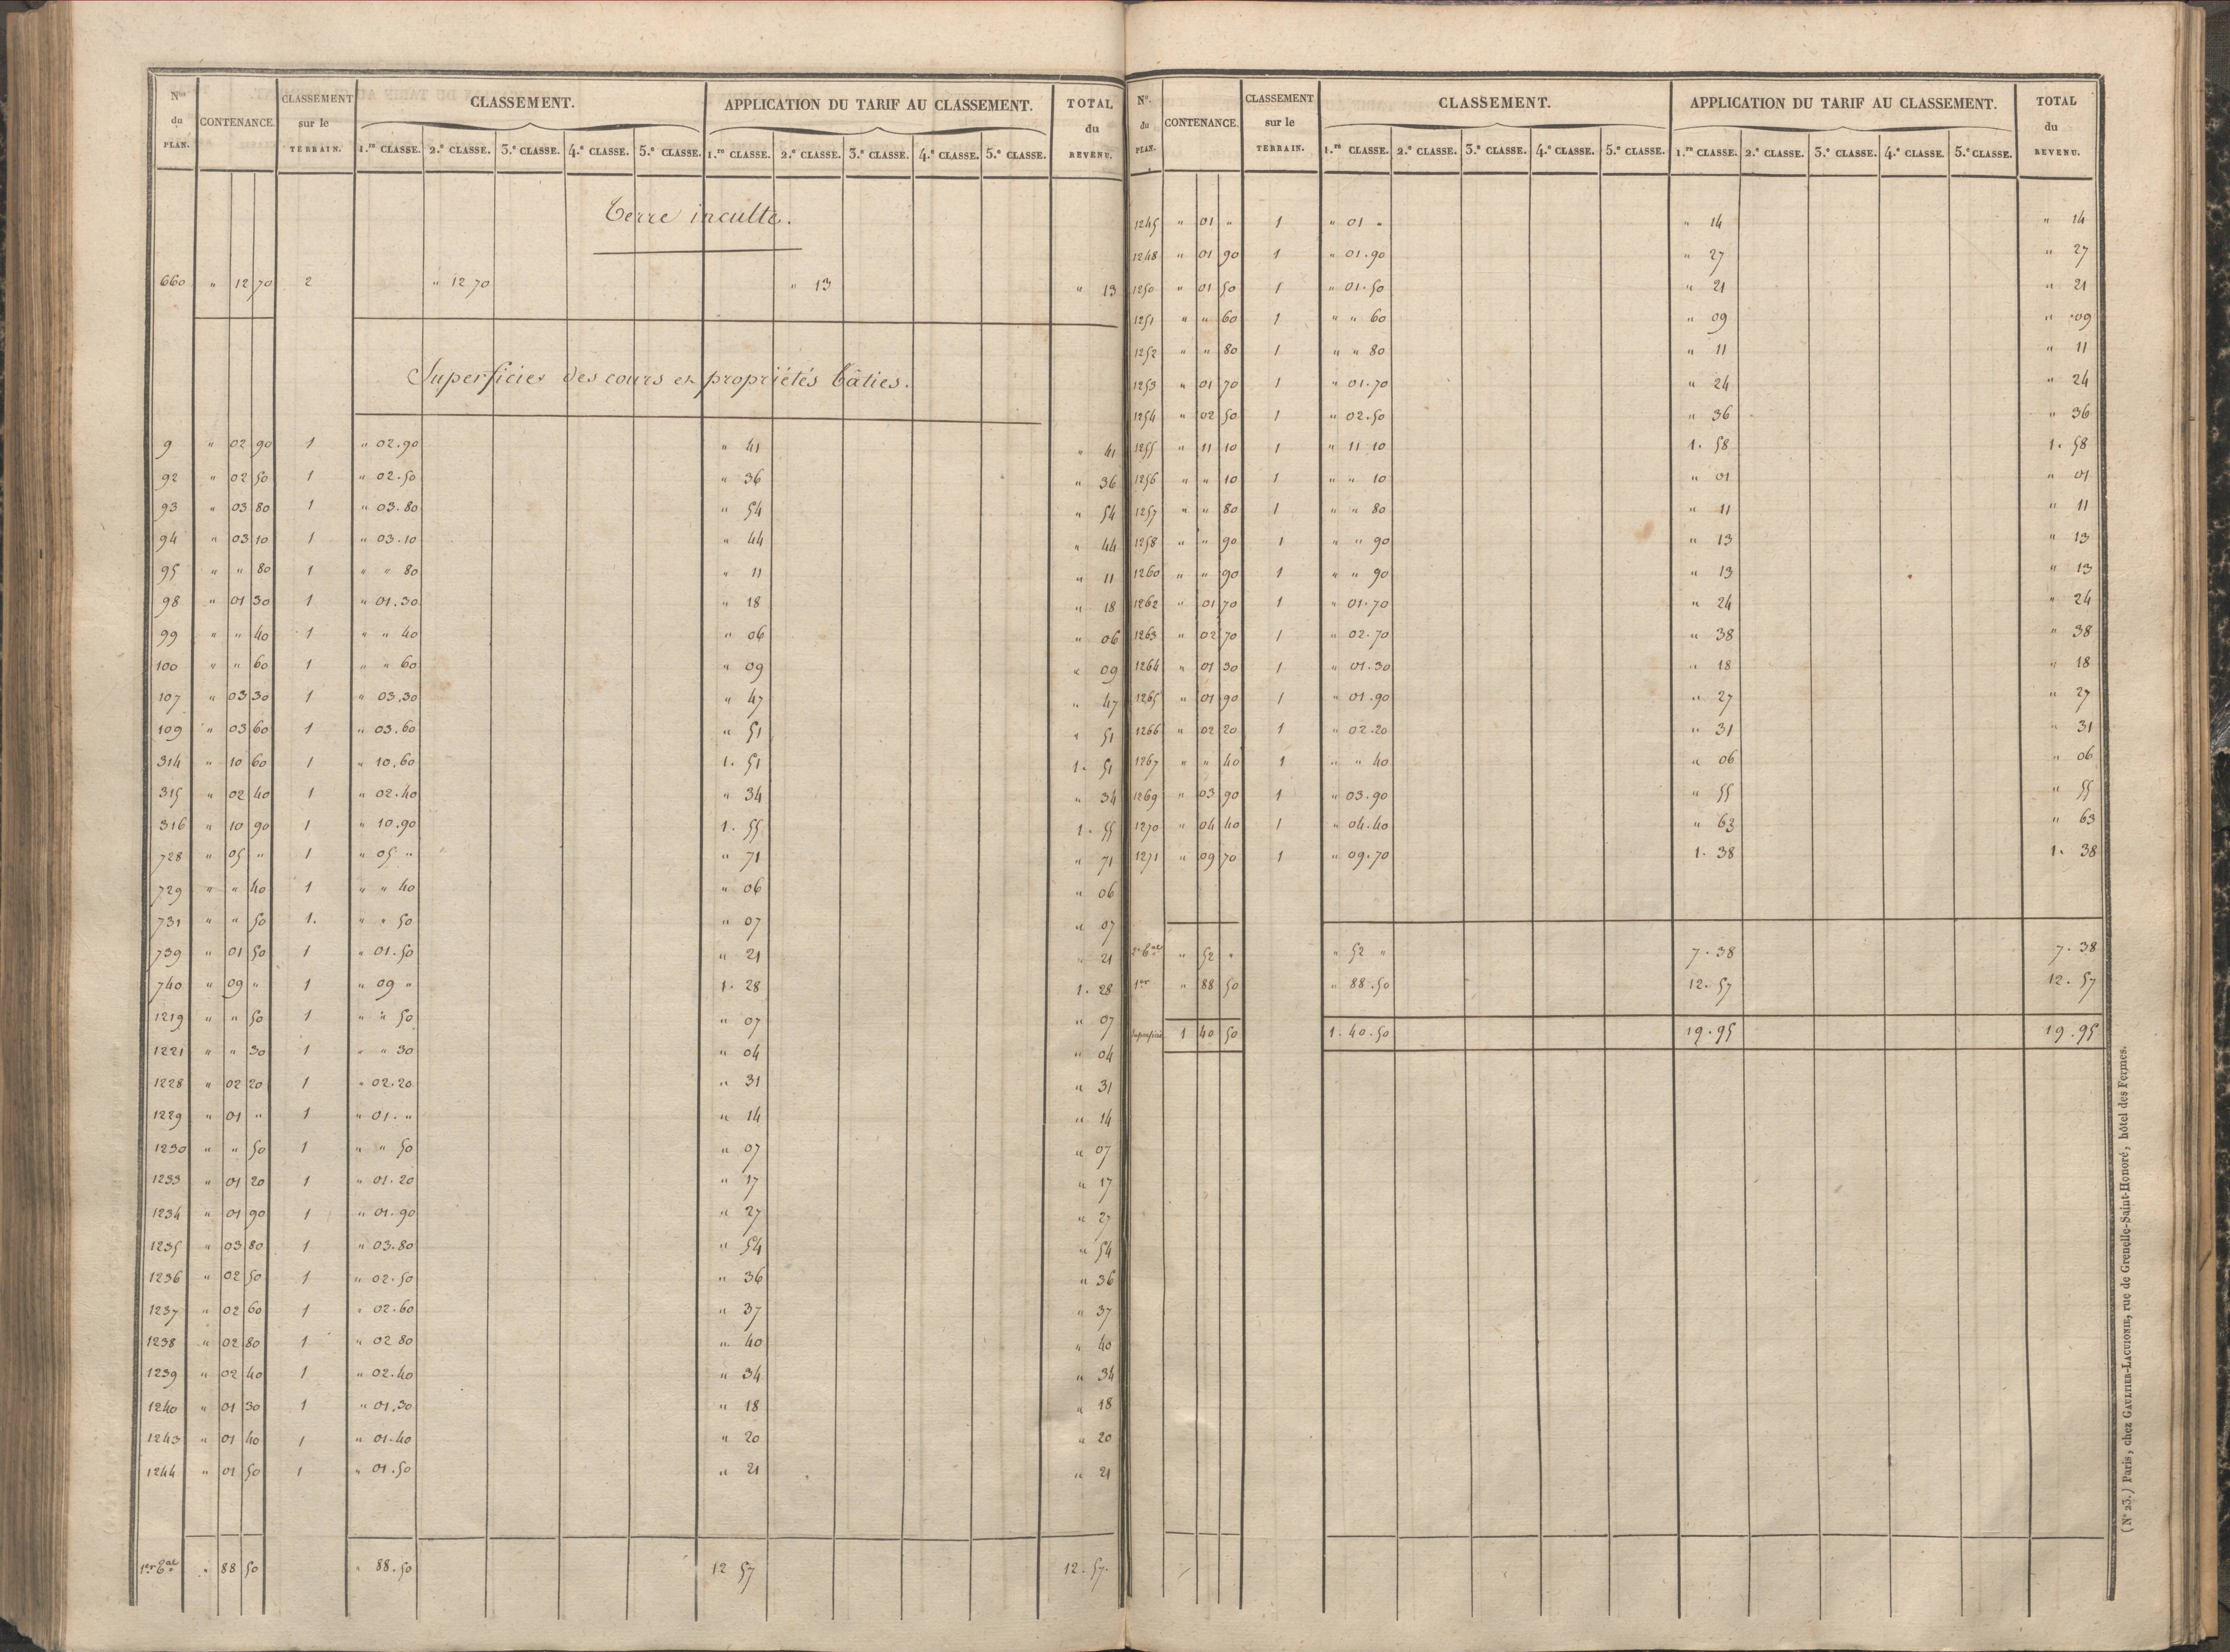 Nos du PLAN. CONTENANCE. CLASSEMENT sur le TERRAIN. CLASSEMENT. APPLICATION DU TARIF AU CLASSEMENT. TOTAL du REVENU.
1.re CLASSE. 2.e CLASSE. 3.e CLASSE. 4.e CLASSE. 5.e CLASSE. 1.re CLASSE. 2.e CLASSE. 3.e CLASSE. 4.e CLASSE. 5.e CLASSE.
Terre inculte.
660 " 12 70 2 " 12 70 " 13 " 13
Superficies des cours et propriétés bâties.
9 " 02 90 1 " 02.90 " 41 " 41
92 " 02 50 1 " 02.50 " 36 " 36
93 " 03 80 1 " 03.80 " 54 " 54
94 " 03 10 1 " 03.10 " 44 " 44
95 " " 80 1 " " 80 " 11 " 11
98 " 01 30 1 " 01.30 " 18 " 18
99 " " 40 1 " " 40 " 06 " 06
100 " " 60 1 " " 60 " 09 " 09
107 " 03 30 1 " 03.30 " 47 " 47
109 " 03 60 1 " 03.60 " 51 " 51
314 " 10 60 1 " 10.60 1. 51 1. 51
315 " 02 40 1 " 02.40 " 34 " 34
316 " 10 90 1 " 10.90 1. 55 1. 55
728 " 05 " 1 " 05 " " 71 " 71
729 " " 40 1 " " 40 " 06 " 06
731 " " 50 1. " " 50 " 07 " 07
739 " 01 50 1 " 01.50 " 21 " 21
740 " 09 " 1 " 09 " 1. 28 1. 28
1219 " " 50 1 " " 50 " 07 " 07
1221 " " 30 1 " " 30 " 04 " 04
1228 " 02 20 1 " 02.20 " 31 " 31
1229 " 01 " 1 " 01. " " 14 " 14
1230 " " 50 1 " " 50 " 07 " 07
1233 " 01 20 1 " 01.20 " 17 " 17
1234 " 01 90 1 " 01.90 " 27 " 27
1235 " 03 80 1 " 03.80 " 54 " 54
1236 " 02 50 1 " 02.50 " 36 " 36
1237 " 02 60 1 " 02.60 " 37 " 37
1238 " 02 80 1 " 02 80 " 40 " 40
1239 " 02 40 1 " 02.40 " 34 " 34
1240 " 01 30 1 " 01.30 " 18 " 18
1243 " 01 40 1 " 01.40 " 20 " 20
1244 " 01 50 1 " 01.50 " 21 " 21
1er " 88 50 " 88.50 12 57 12.57.
No. du PLAN. CONTENANCE. CLASSEMENT sur le TERRAIN. CLASSEMENT. APPLICATION DU TARIF AU CLASSEMENT. TOTAL du REVENU.
1.re CLASSE. 2.e CLASSE. 3.e CLASSE. 4.e CLASSE. 5.e CLASSE. 1.re CLASSE. 2.e CLASSE. 3.e CLASSE. 4.e CLASSE. 5.e CLASSE.
1245 " 01 " 1 " 01 " " 14 " 14
1248 " 01 90 1 " 01.90 " 27 " 27
1250 " 01 50 1 " 01.50 " 21 " 21
1251 " " 60 1 " " 60 " 09 " 09
1252 " " 80 1 " " 80 " 11 " 11
1253 " 01 70 1 " 01.70 " 24 " 24
1254 " 02 50 1 " 02.50 " 36 " 36
1255 " 11 10 1 " 11 10 1. 58 1. 58
1256 " " 10 1 " " 10 " 01 " 01
1257 " " 80 1 " " 80 " 11 " 11
1258 " " 90 1 " " 90 " 13 " 13
1260 " " 90 1 " " 90 " 13 " 13
1262 " 01 70 1 " 01.70 " 24 " 24
1263 " 02 70 1 " 02.70 " 38 " 38
1264 " 01 30 1 " 01.30 " 18 " 18
1265 " 01 90 1 " 01.90 " 27 " 27
1266 " 02 20 1 " 02.20 " 31 " 31
1267 " " 40 1 " " 40 " 06 " 06
1269 " 03 90 1 " 03.90 " 55 " 55
1270 " 04 40 1 " 04.40 " 63 " 63
1271 " 09 70 1 " 09.70 1. 38 1. 38
2e " 52 " " 52 " 7.38 7.38
1er " 88 50 " 88.50 12.57 12.57
1 40 50 1.40.50 19.95 19.95
(No 23.) Paris, chez GAULTIER-LAGUIONIE, rue de Grenelle-Saint-Honoré, hôtel des Fermes.